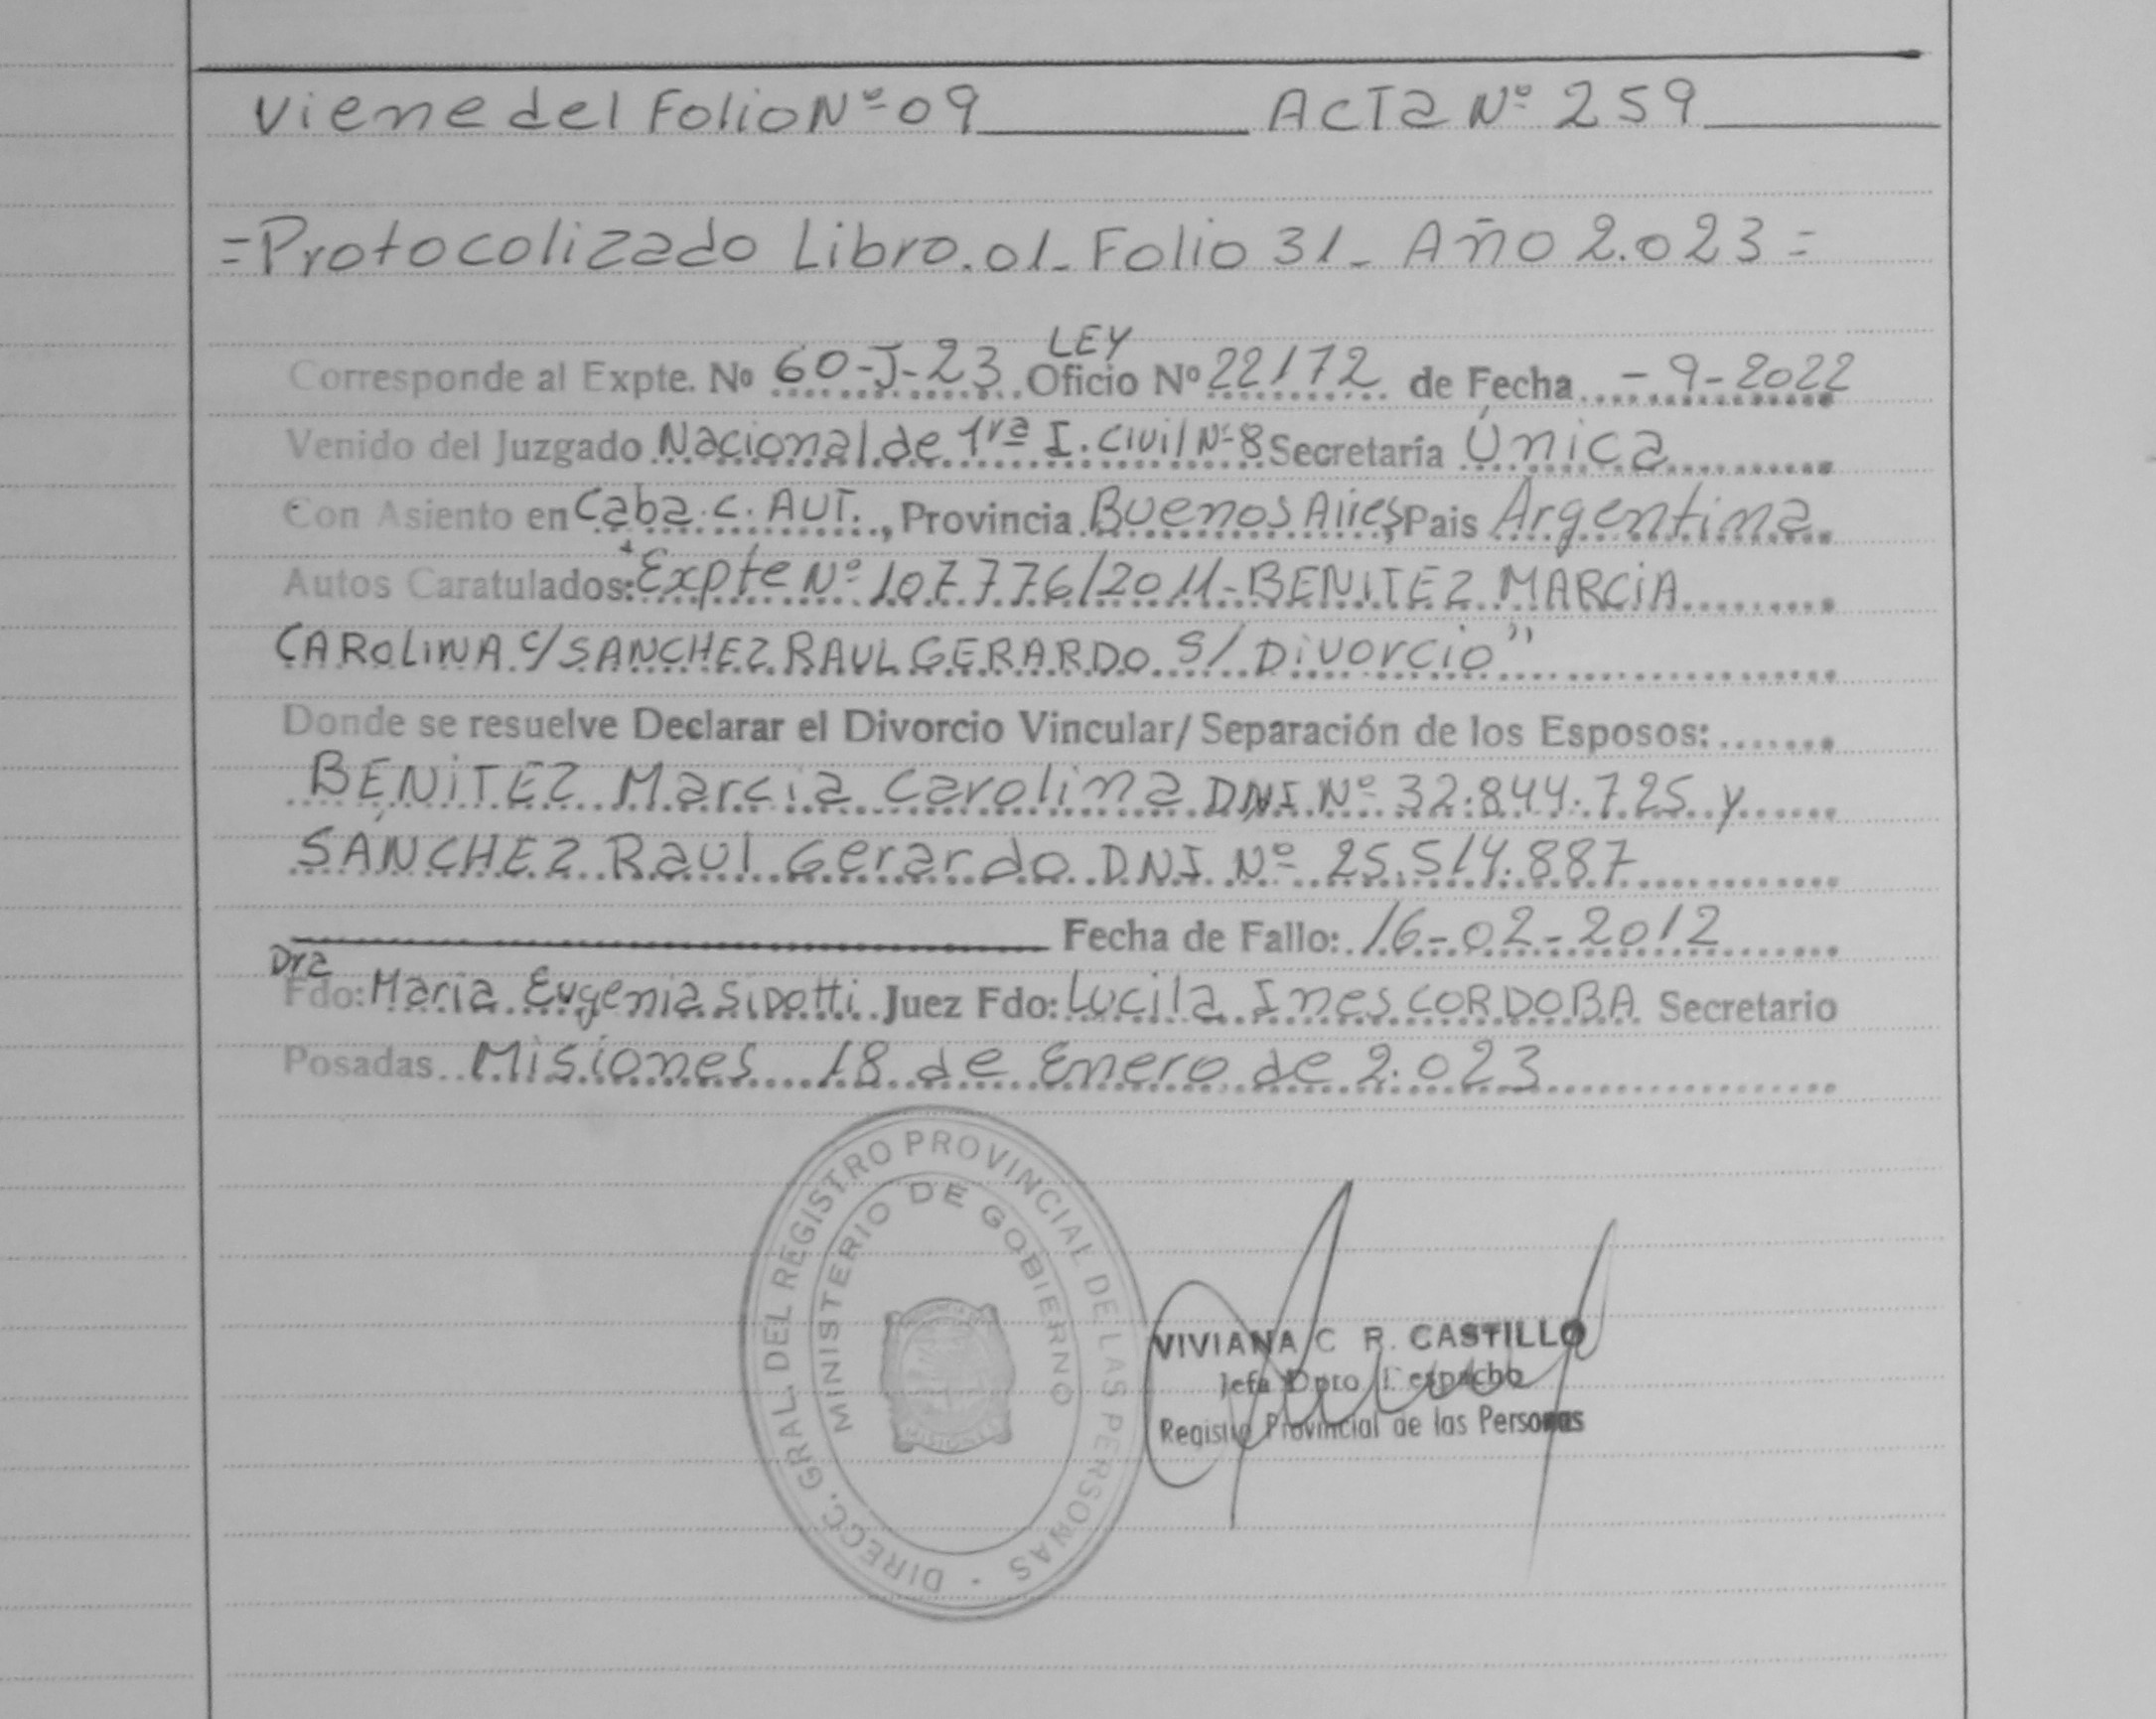 Viene del Folio Nº 09 Acta Nº 259
=Protocolizado Libro.01_ Folio 31_ Año 2.023=
LEY
Corresponde al Expte. Nº 60-J-23 Oficio Nº 22172 de Fecha - 9-2022
Venido del Juzgado Nacional de 1ra I. Civil Nº 8 Secretaría Única
Con Asiento en Caba. C. AUT., Provincia Buenos Aires, Pais Argentina
Autos Caratulados: "Expte Nº 107776/2011-BENITEZ MARCIA
CAROLINA C/SANCHEZ RAUL GERARDO S/ Divorcio"
Donde se resuelve Declarar el Divorcio Vincular/ Separación de los Esposos:
BENITEZ Marcia Carolina DNI Nº 32.844.725 y
SANCHEZ Raul Gerardo DNI Nº 25.514.887
Fecha de Fallo: 16-02-2012
Dra
Fdo: Maria Eugenia Sidotti Juez Fdo: Lucila Ines CORDOBA Secretario
Posadas Misiones 18 de Enero de 2.023
DIRECC. GRAL. DEL REGISTRO PROVINCIAL DE LAS PERSONAS
MINISTERIO DE GOBIERNO
MISIONES
VIVIANA C R. CASTILLO
Jefa Dpto Despacho
Registro Provincial de las Personas